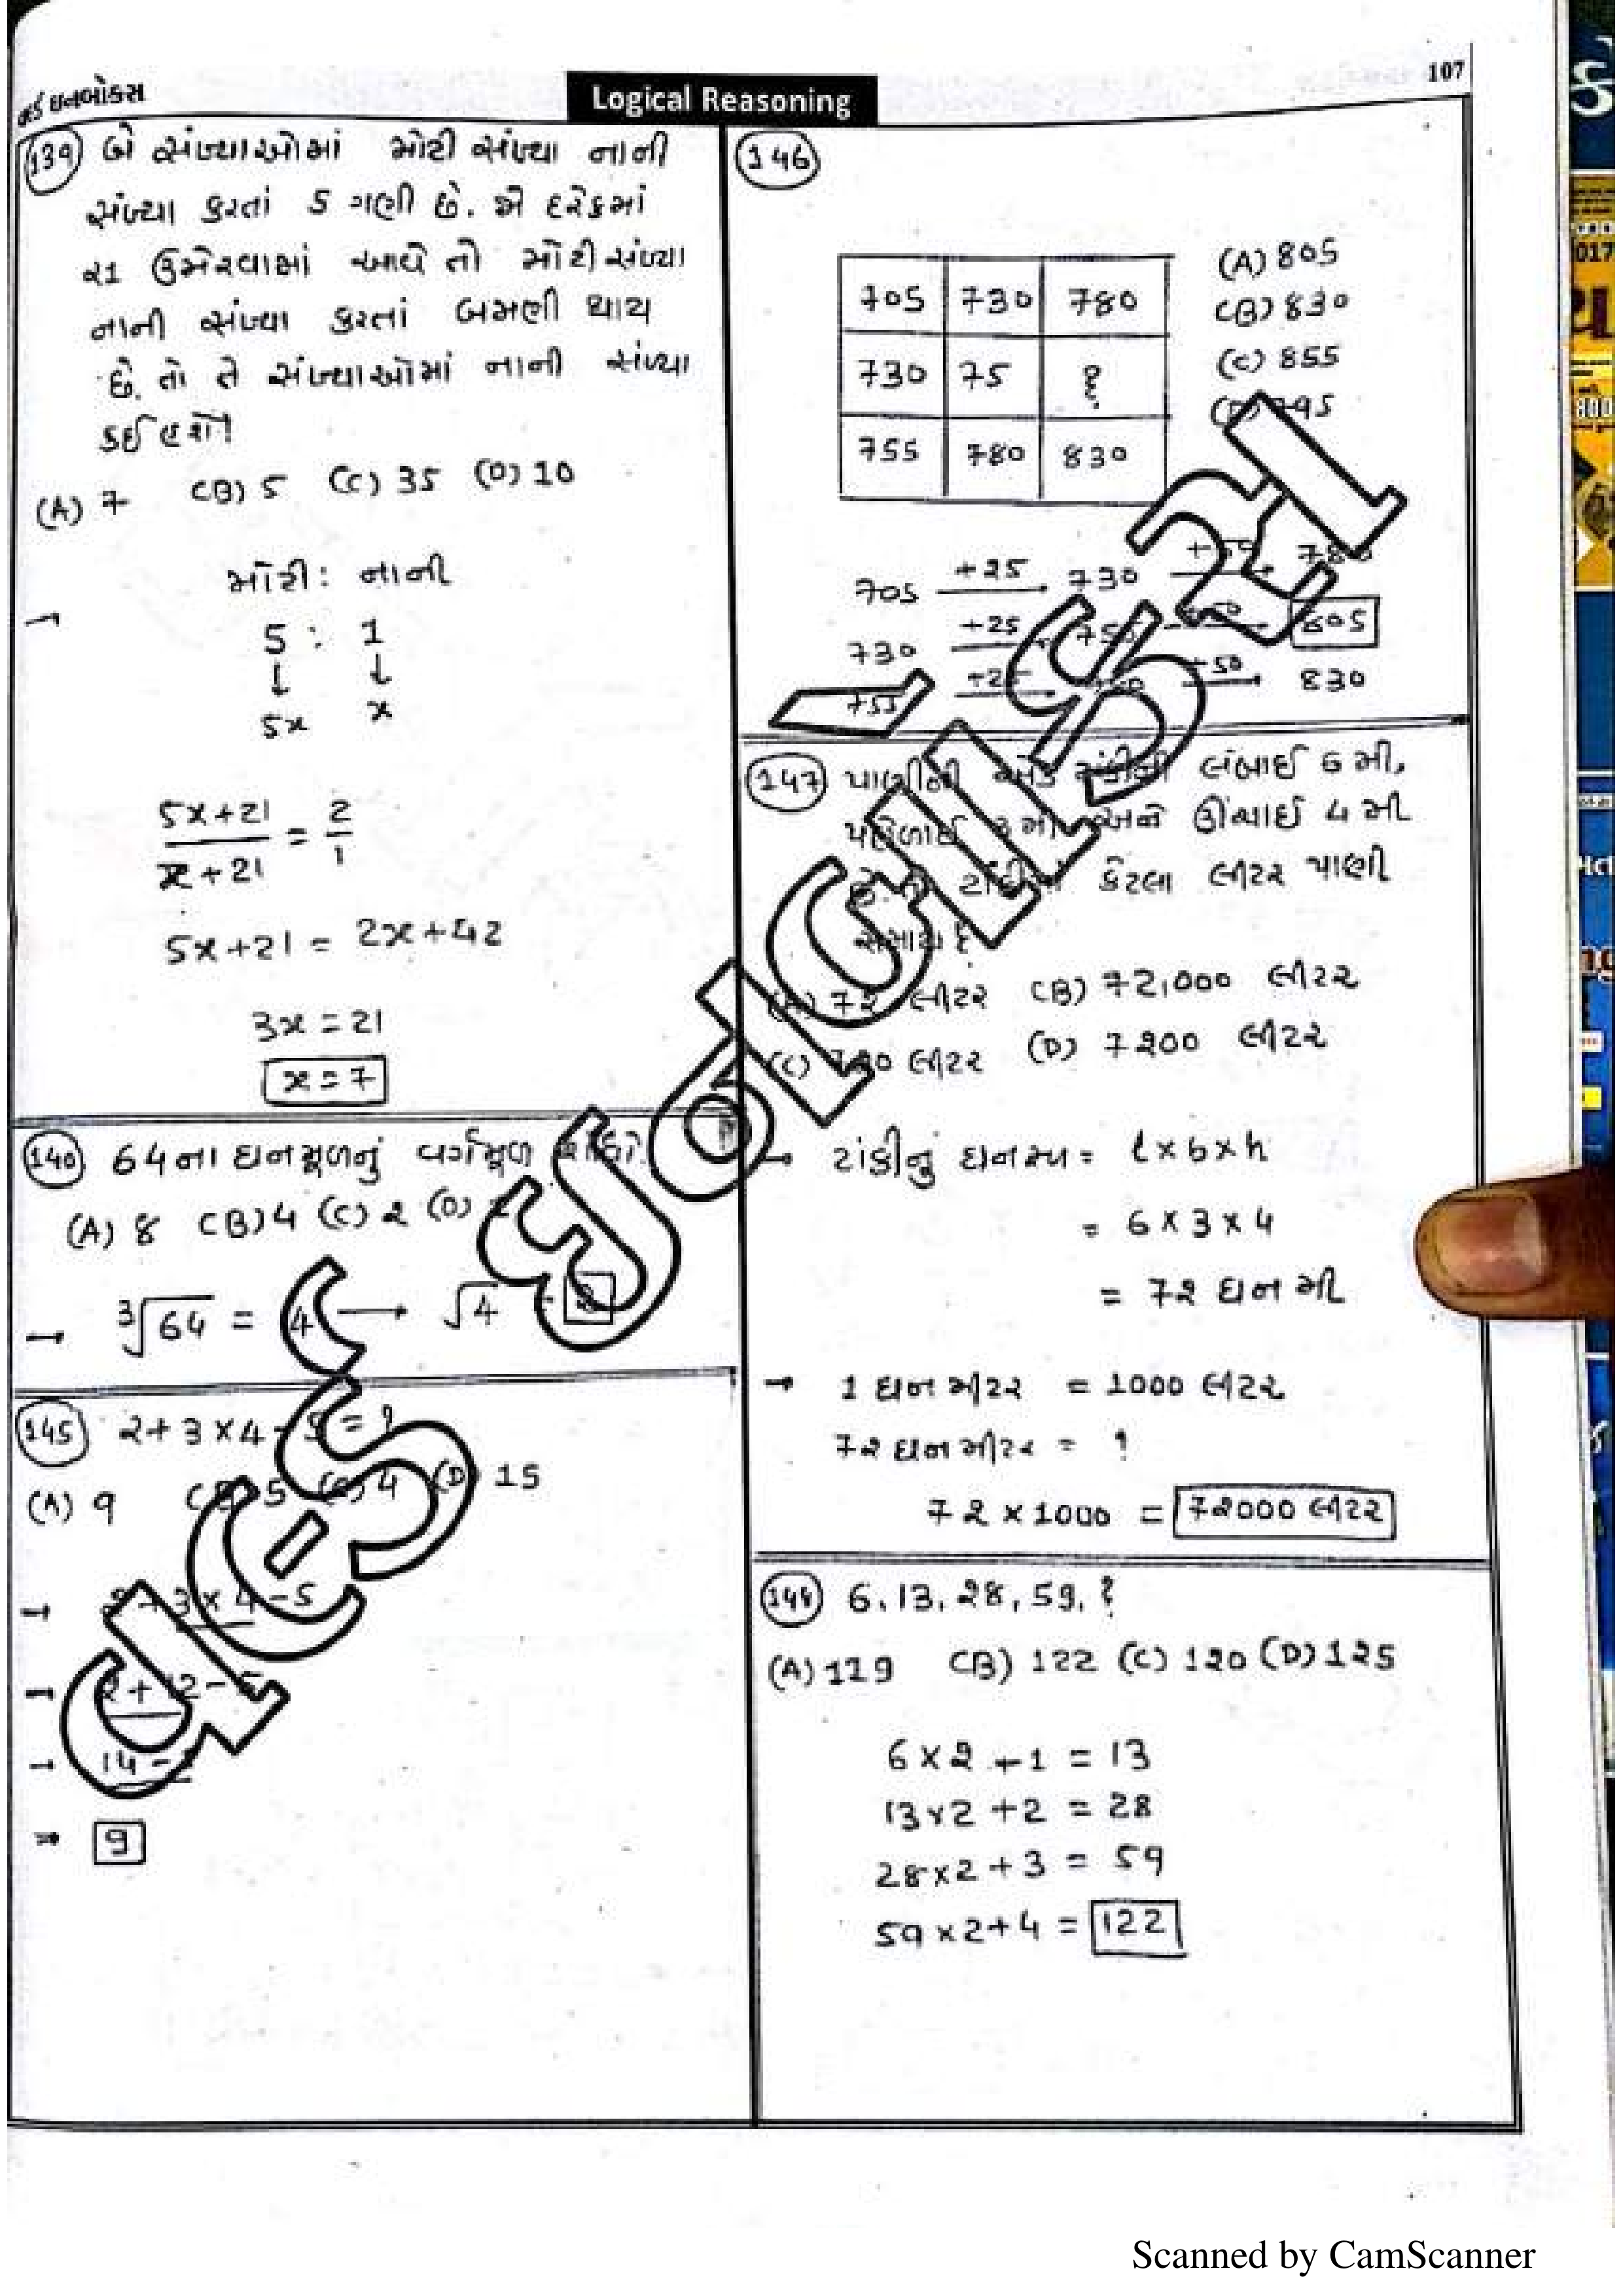 107
વર્ડ ઇનબોક્સ
Logical Reasoning
139 બે સંખ્યાઓમાં મોટી સંખ્યા નાની
સંખ્યા કરતાં 5 ગણી છે. એ દરેકમાં
૨1 ઉમેરવામાં આવે તો મોટી સંખ્યા
નાની સંખ્યા કરતાં બમણી થાય
છે. તો તે સંખ્યાઓમાં નાની સંખ્યા
કઈ હશે!
(A) 7 (B) 5 (C) 35 (D) 10
મોટી : નાની
→ 5 : 1
↓ ↓
5x x
5x+21 / x+21 = 2/1
5x+21 = 2x+42
3x = 21
x = 7
140 64ના ઘનમૂળનું વર્ગમૂળ
(A) 8 (B) 4 (C) ૨ (D)
→ ∛64 = 4 → √4
145 ૨+3×4-5 = ?
(A) 9 (B) 5 (C) 4 (D) 15
→ ૨+3×4-5
→ 2+12-5
→ 14-
⇒ 9
146
705 730 780 (A) 805
730 75 ? (B) 830
755 780 830 (C) 855
795
705 +25 → 730 780
730 +25 755 805
755 +50 → 830
147 પાણીની લંબાઈ 6 મી,
અને ઊંચાઈ 4 મી
કેટલા લીટર પાણી
(A) 7૨ લીટર (B) 72,000 લીટર
(C) 7૨0 લીટર (D) 7૨00 લીટર
→ ટાંકીનું ઘનફળ = l×b×h
= 6×3×4
= 7૨ ઘન મી
→ 1 ઘન મીટર = 1000 લીટર
7૨ ઘન મીટર = ?
7૨ × 1000 = 7૨000 લીટર
148 6, 13, ૨8, 59, ?
(A) 119 (B) 122 (C) 1૨0 (D) 1૨5
6×૨+1 = 13
13×2+2 = 28
28×2+3 = 59
59×2+4 = 122
Scanned by CamScanner